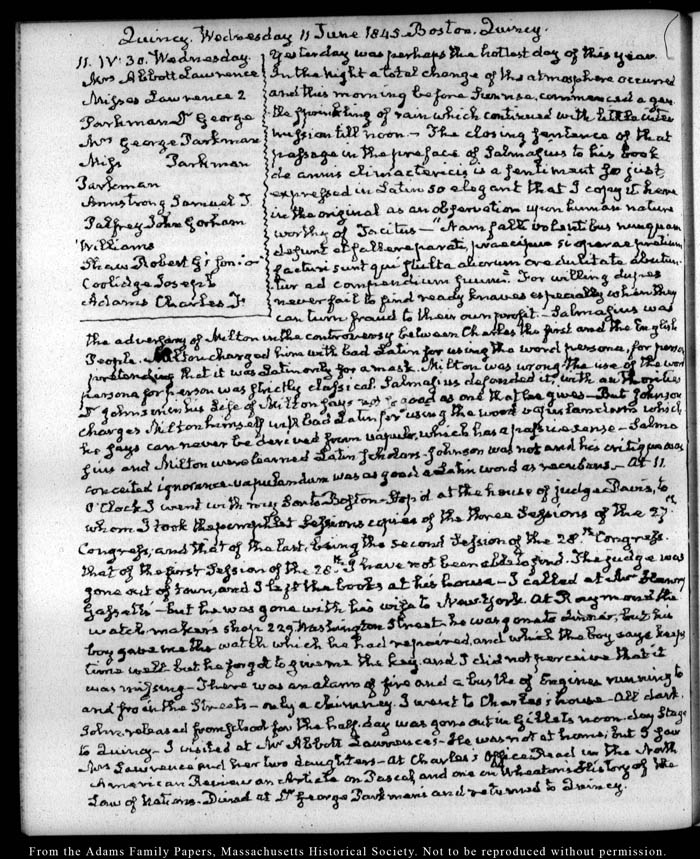 Quincy. Wednesday 11 June 1845. Boston. Quincy.
11. IV:30. Wednesday.
Mrs Abbott Lawrence
Misses Lawrence 2
Parkman Dr George
Mrs George Parkman
Miss Parkman
Parkman
Armstrong Samuel T.
Palfrey John Gorham
Williams
Shaw Robert G's son
Coolidge Joseph
Adams Charles F.
Yesterday was perhaps the hottest day of this year.
In the night a total change of the atmosphere occurred
and this morning before Sunrise, commenced a gen
tle sprinkling of rain which continued with little inter
mission till noon — The closing sentence of that
passage in the preface of Salmasius to his book
de annis climactericis is a sentiment so just,
expressed in Latin so elegant that I copy it here
in the original as an observation upon human nature
worthy of Tacitus — "Nam falli volentibus nunquam
defunt et fallere parati, praecipue si operae pretium
facturi sunt qui stulta aliorum credulitate abutun
tur ad compendium suum." For willing dupes
never fail to find ready knaves especially when they
can turn fraud to their own profit. — Salmasius was
the adversary of Milton in the controversy between Charles the first and the English
People. Milton charged him with bad Latin for using the word persona, for person
pretending that it was Latin only for a mask. Milton was wrong. the use of the word
persona for person was strictly classical. Salmasius defended it, with authorities
Dr Johnson in his Life of Milton says as good as one that he gives — But Johnson
charges Milton himself with bad Latin for using the word vapulandum which
he says can never be derived from vapulo, which has a passive sense — Salma
sius and Milton were learned Latin Scholars. Johnson was not and his critique was
conceited ignorance. vapulandum was as good a Latin word as — At 11.
O'Clock I went with my Son to Boston — Stop'd at the house of judge Davis, to
whom I took the pamphlet Sessions copies of the three Sessions of the 27th
Congress, and that of the last, being the second Session of the 28th Congress.
that of the first Session of the 28th I have not been able to find. The judge was
gone out of town, and I left the books at his house — I called at Mr Henry
Gassett's — but he was gone with his wife to New York. At Raymond the
watch maker's shop 229 Washington Street he was gone to dinner, but his
boy gave me the watch which he had repaired, and which the boy says keeps
time well but he forgot to give me the key, and I did not perceive that it
was missing — There was an alarm of fire and a bustle of Engines running to
and fro in the Streets — only a chimney. I went to Charles's house — All dark.
John, released from school for the half-day was gone out in Gillets noon-day Stage
to Quincy — I visited at Mr Abbott Lawrence's — He was not at home, but I saw
Mrs Lawrence and her two daughters — at Charles's Office Read in the North
American Review an Article on Pascal, and one in Wheaton's History of the
Law of Nations. Dined at Dr George Parkman's and returned to Quincy.
From the Adams Family Papers, Massachusetts Historical Society. Not to be reproduced without permission.